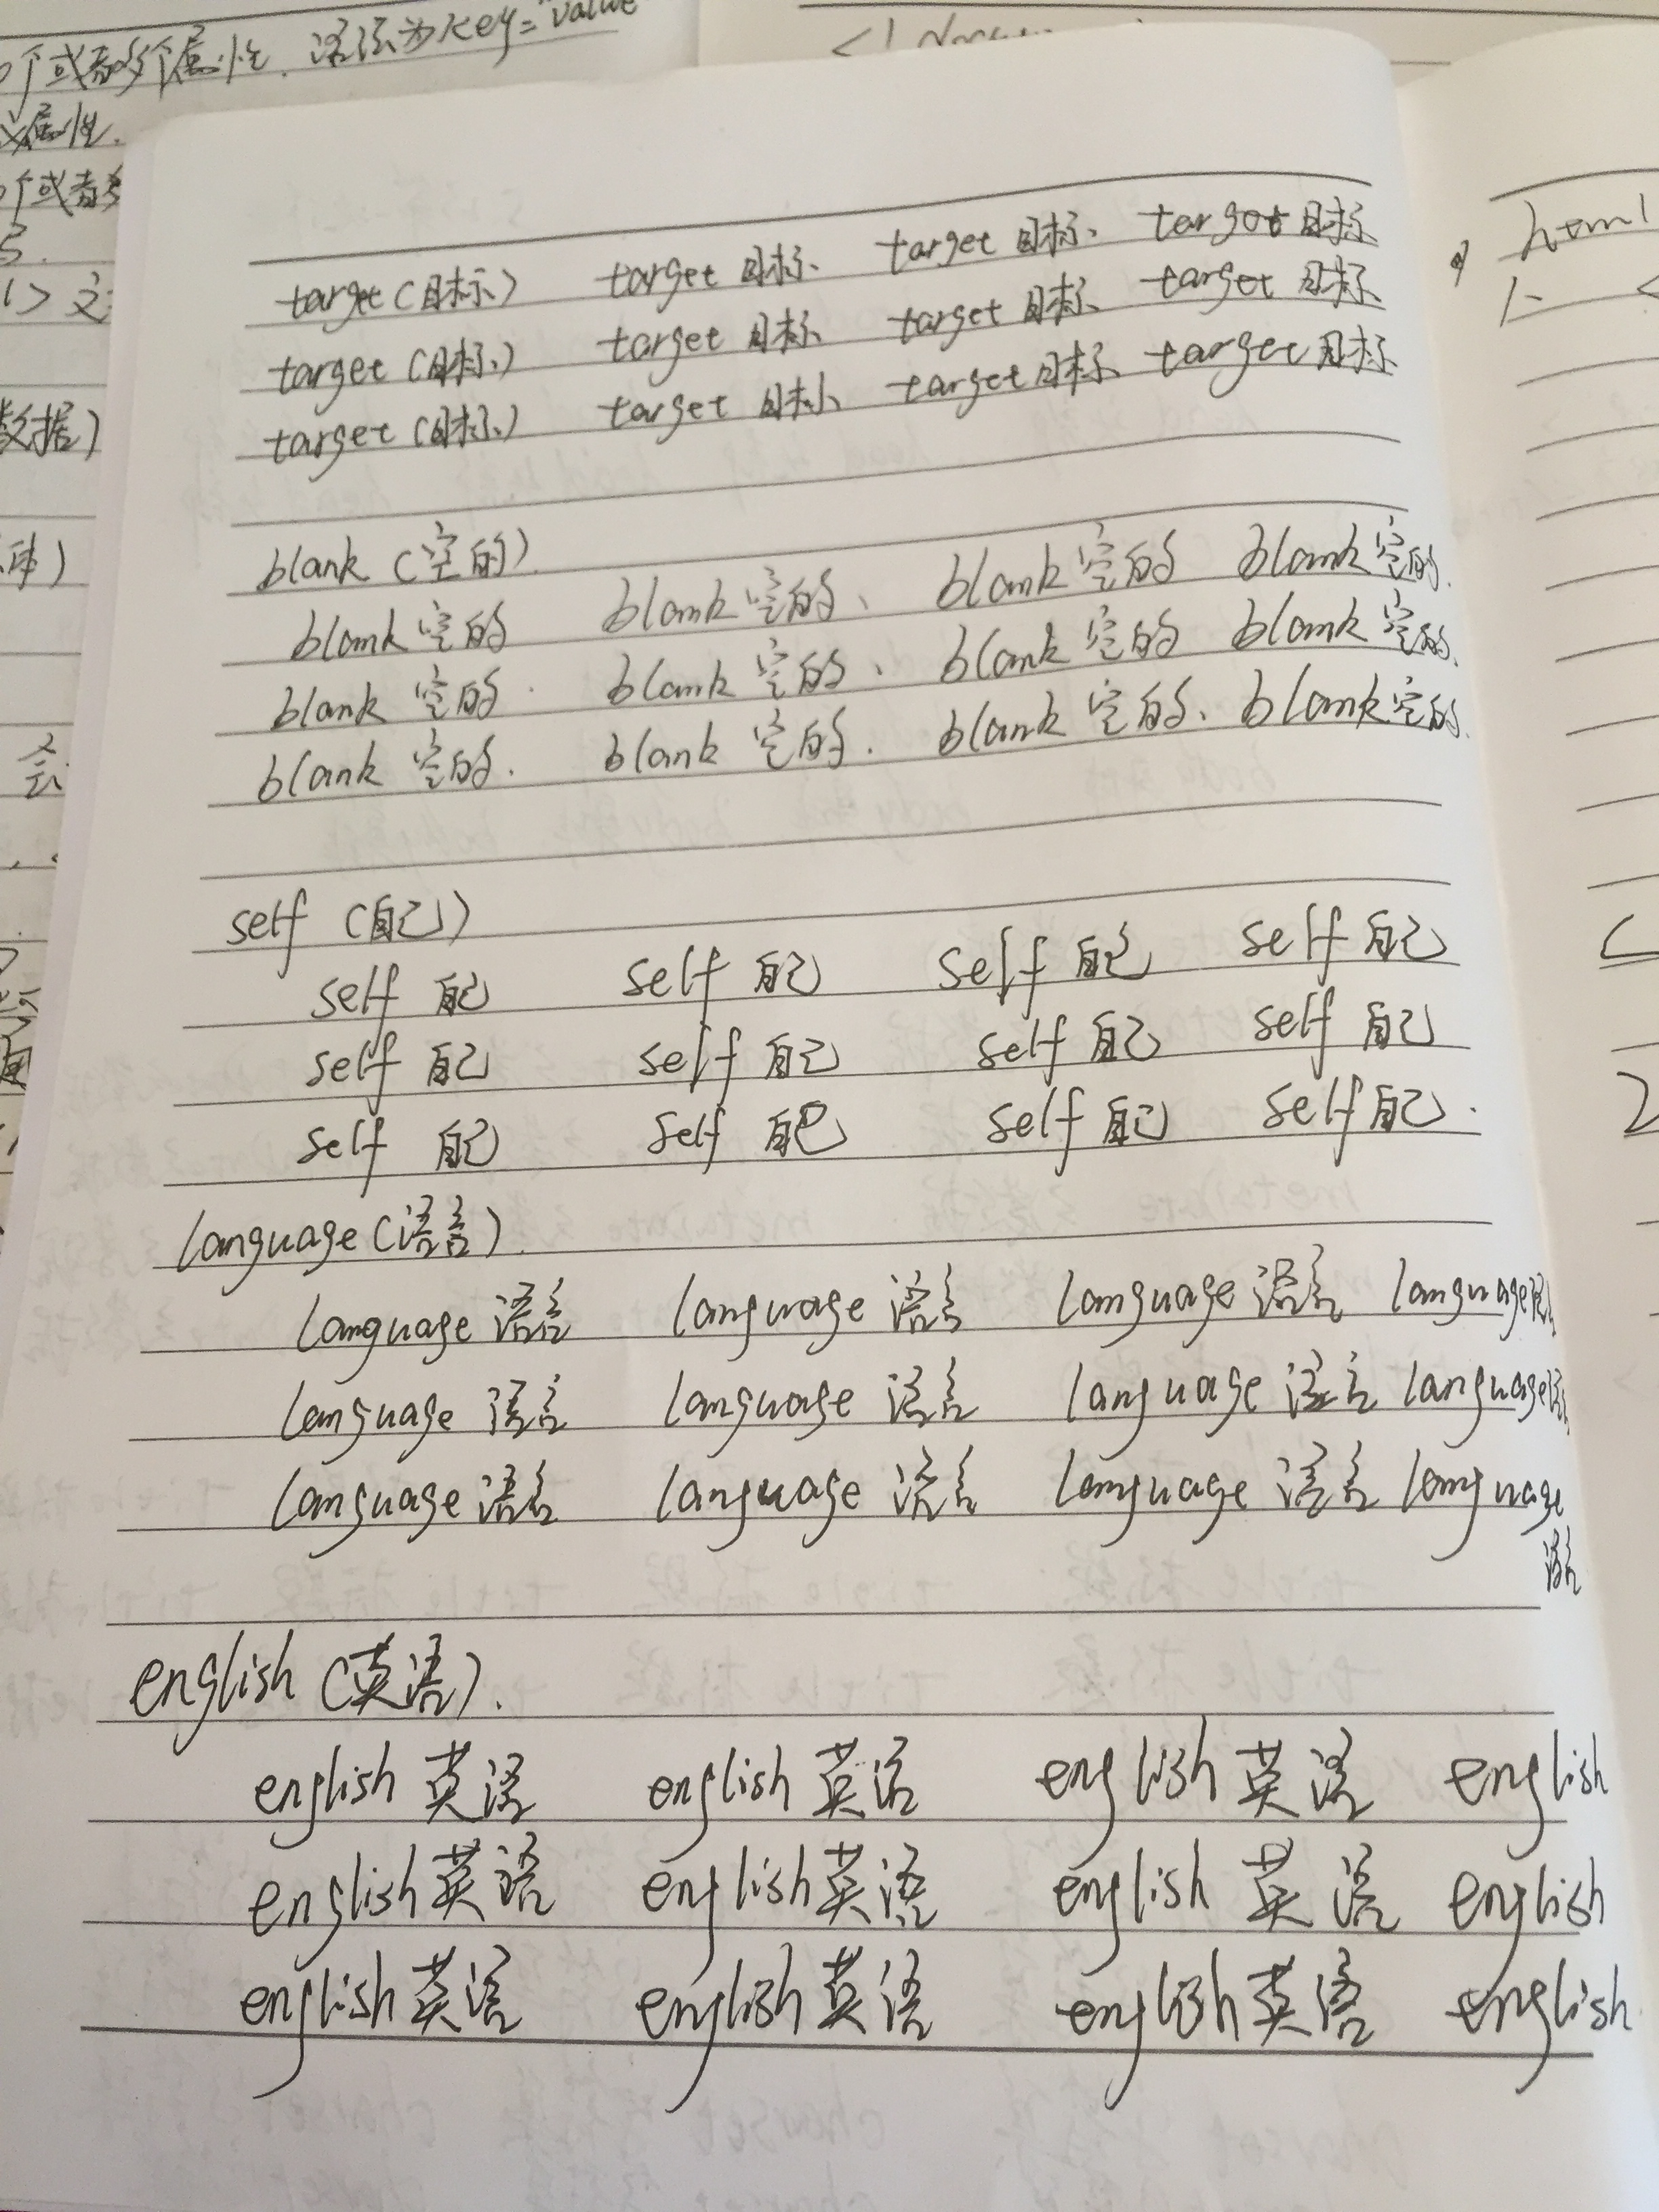 个或者多个属性. 语法为key="value
属性.
个或者多
数据)
html
target(目标) target 目标、 target 目标、 target 目标
target(目标) target 目标 target 目标 target 目标
target(目标) target 目标 target 目标 target 目标
blank (空的)
blank 空的 blank 空的、 blank 空的 blank 空的.
blank 空的. blank 空的、 blank 空的 blank 空的.
blank 空的. blank 空的. blank 空的、 blank 空的.
self (自己)
self 自己 self 自己 self 自己 self 自己
self 自己 self 自己 self 自己 self 自己
self 自己 self 自己 self 自己 self 自己.
language(语言).
language 语言 language 语言 language 语言 language语言
language 语言 language 语言 language 语言 language语言
language 语言 language 语言 language 语言 language
语言
english (英语).
english 英语 english 英语 english 英语 english
english 英语 english 英语 english 英语 english
english 英语 english 英语 english 英语 english